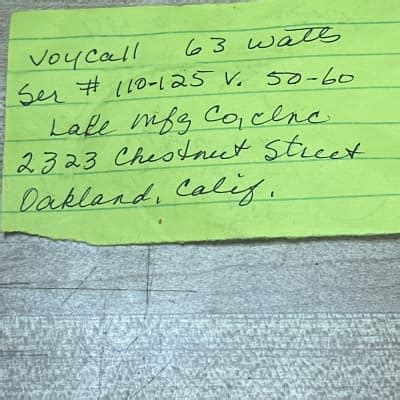 Voycall 63 watts
Ser # 110-125 V. 50-60
Lake Mfg Co, Inc
2323 Chestnut Street
Oakland, Calif.